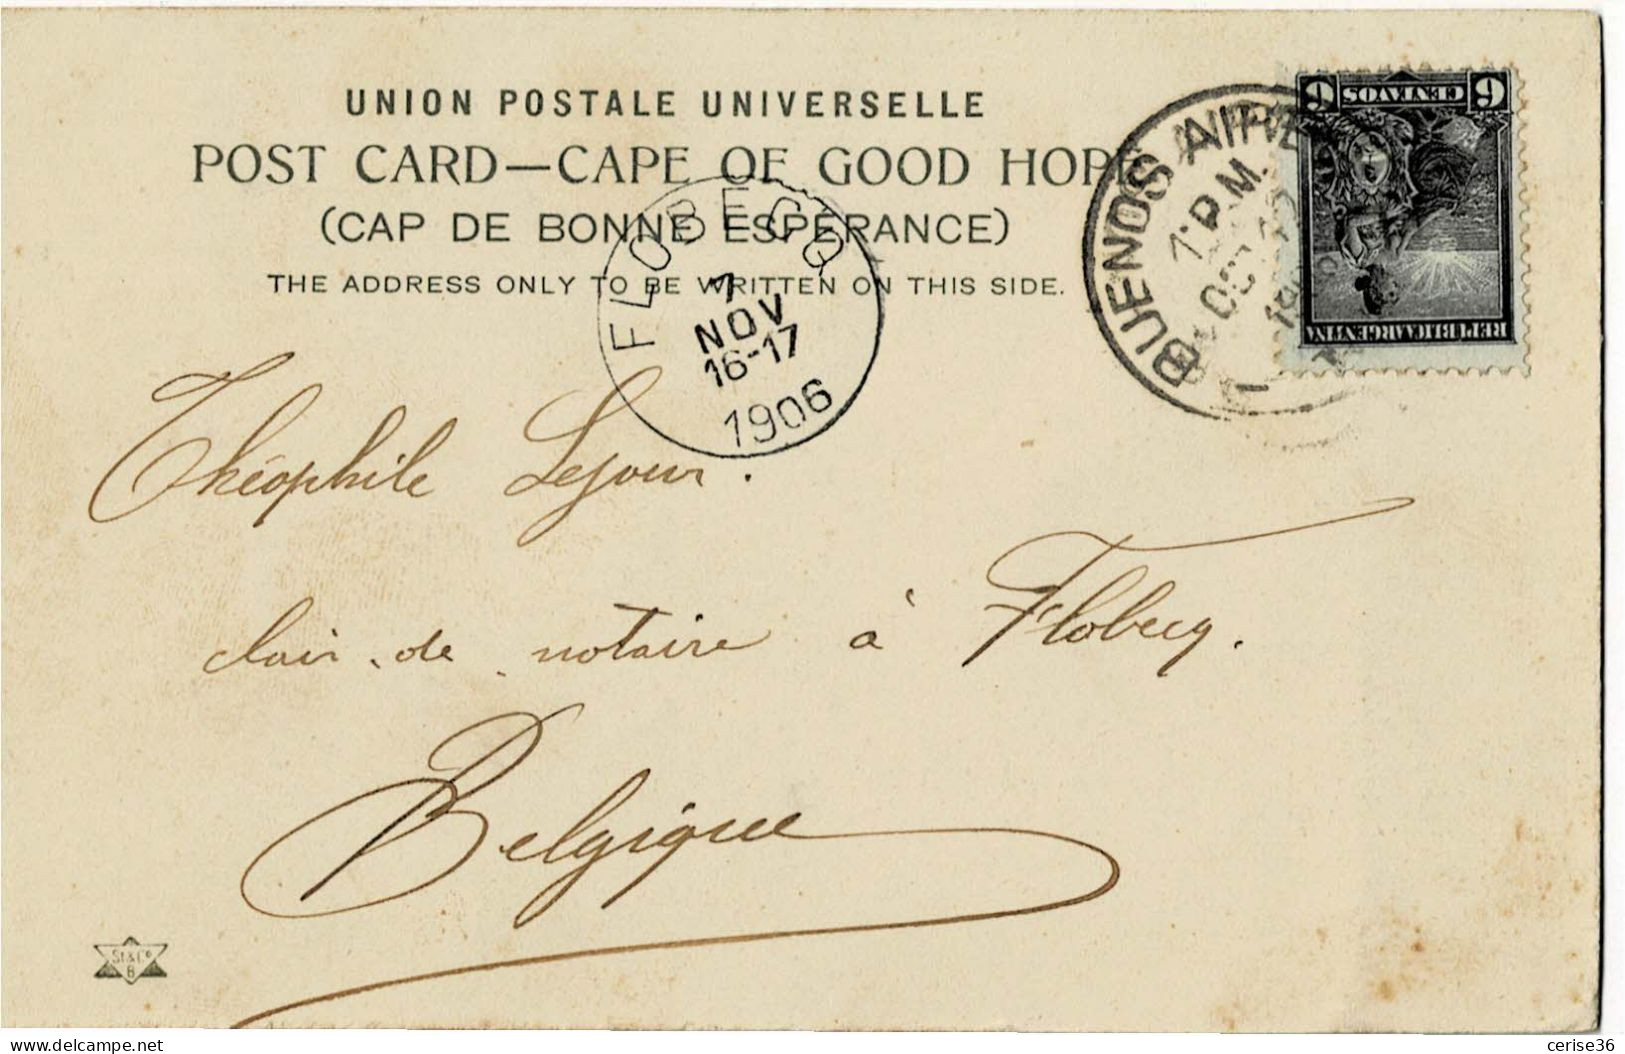 UNION POSTALE UNIVERSELLE
POST CARD—CAPE OF GOOD HOPE
(CAP DE BONNE ESPÉRANCE)
THE ADDRESS ONLY TO BE WRITTEN ON THIS SIDE.
6 CENTAVOS 6
REPUBLICA ARGENTINA
BUENOS AIRES
1 P.M.
OCT
FLOBECQ
7
NOV
16-17
1906
Théophile Lejour.
clair de notaire à Flobecq.
Belgique
St & Co
B
delcampe.net
cerise36